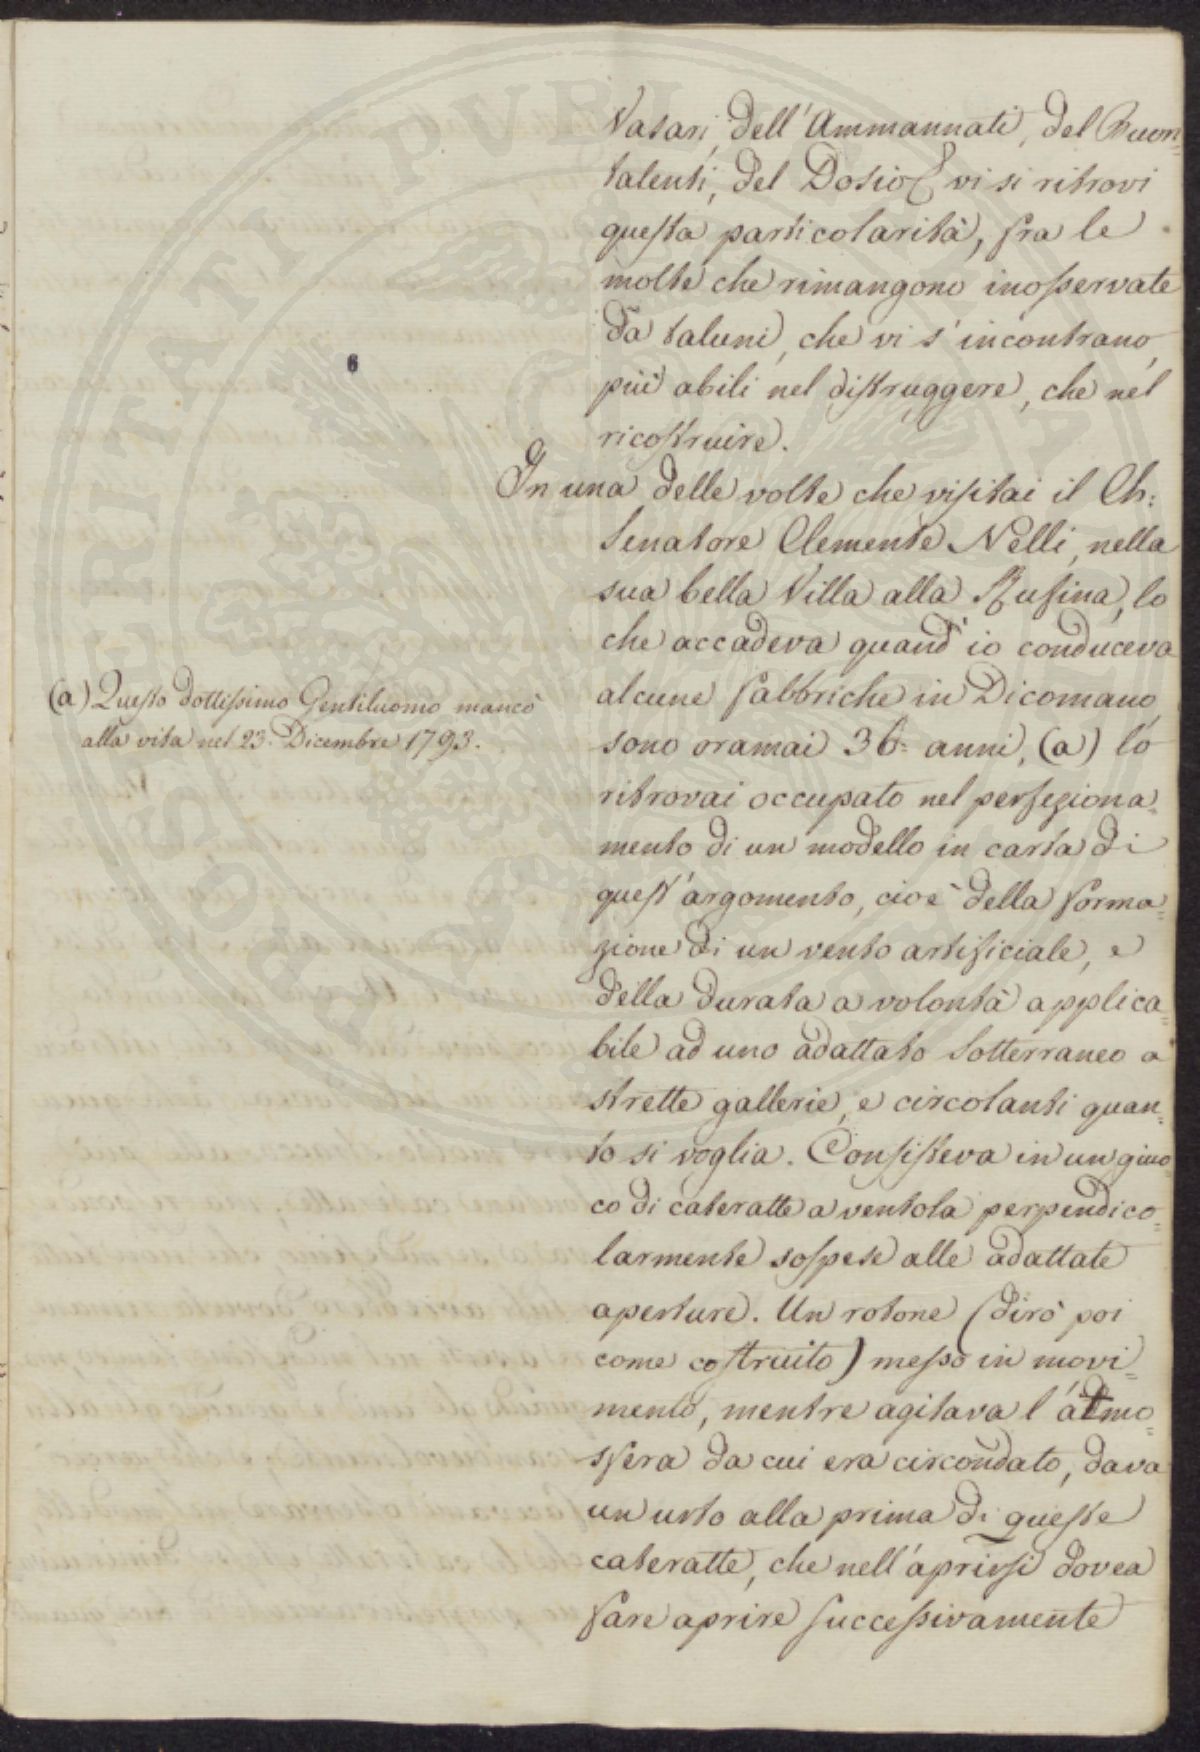 Vasari, dell'Ammannati, del Buon=
talenti, del Dosio vi si ritrovi
questa particolarità, fra le
molte che rimangono inosservate
da taluni, che vi s'incontrano,
più abili nel distruggere, che nel
ricostruire.
In una delle volte che visitai il Ch:
Senatore Clemente Nelli, nella
sua bella Villa alla Rufina, lo
che accadeva quand'io conduceva
alcune fabbriche in Dicomano,
sono oramai 36: anni, (a) lo
ritrovai occupato nel perfeziona=
mento di un modello in carta di
quest'argomento, cioè della forma=
zione di un vento artificiale, e
della durata a volontà applica=
bile ad uno adattato Sotterraneo a
strette gallerie, e circolanti quan=
to si voglia. Consisteva in un giuo=
co di cateratte a ventola perpendico=
larmente sospese alle adattate
aperture. Un rotone (dirò poi
come costruito) messo in movi=
mento, mentre agitava l'atmo=
sfera da cui era circondato, dava
un urto alla prima di queste
cateratte, che nell'aprirsi dovea
fare aprire successivamente
(a) Questo dottissimo Gentiluomo mancò
alla vita nel 23. Dicembre 1793.
6